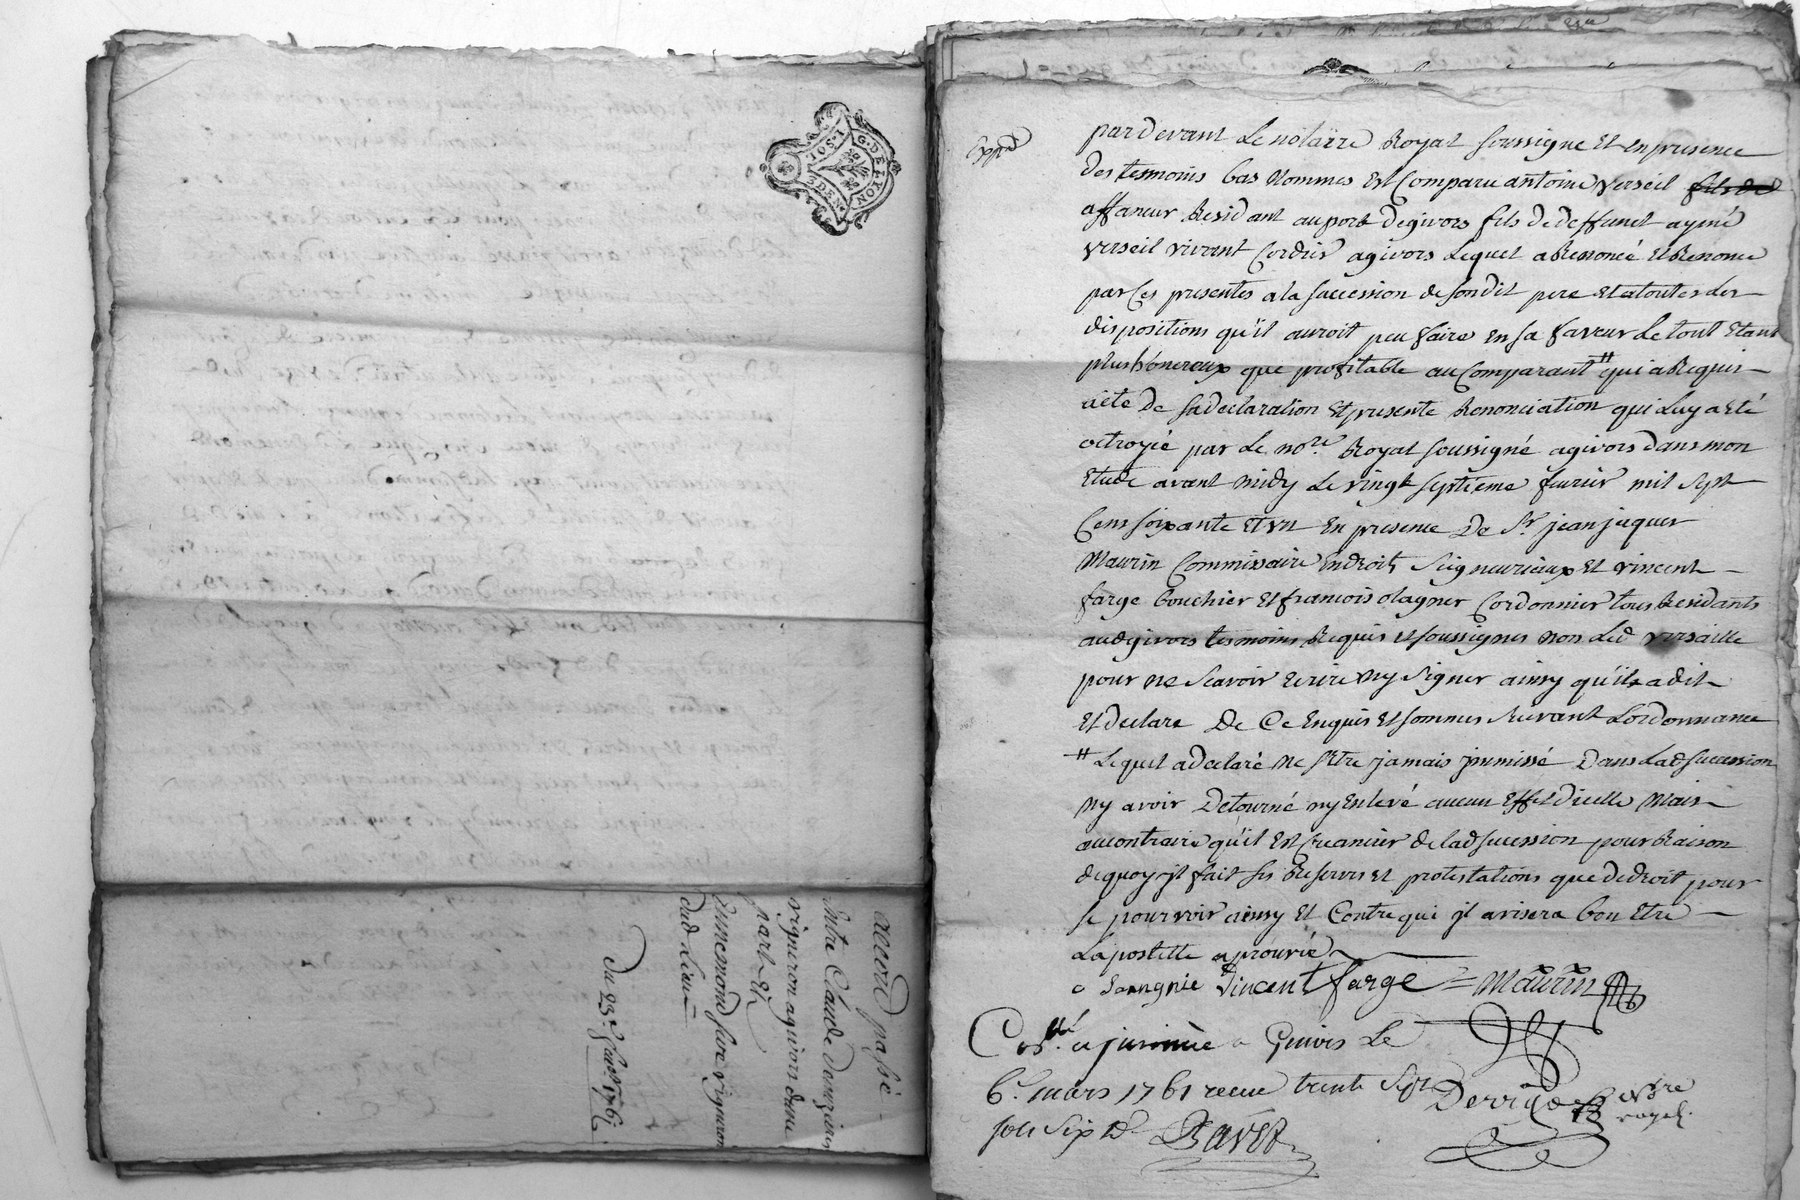 G. DE LYON
1. SOL
3 DEN.
accord passé
Entre Claude
vigneron a givors dune
part Et
vigneron
dud Lieu
Du 23e 1761
Expié
par devant Le notaire Royal soussigne Et en presence
Des tesmoins bas Nommes Est Comparu antoine verseil fils de
affaneur Residant au port de givors fils de deffunct aymé
verseil vivant Cordier a givors Lequel a Renoncé Et Renonce
par Ces presentes a la succession de sondit pere Et a toutes Les
dispositions qu'il auroit peu faire En sa faveur Le tout Etant
plus honereux que profitable au Comparant # qui a Requis
acte De sa declaration Et presente Renonciation qui Luy a Eté
octroyée par Le nore Royal soussigné a givors dans mon
Etude avant midy Le vingt septieme fevrier mil sept
Cens soixante Et un En presence De Sr jean jaques
Maurin Commissaire En droits Seigneuriaux Et vincent
farge bouchier Et francois olagner Cordonnier tous Residants
aud givors tesmoins Requis Et soussignes non Led verseille
pour ne scavoir Ecrire ny Signer ainsy qu'il a dit
Et declare De Ce Enquis Et sommes suivant Lordonnance
# Lequel a declaré ne s'Etre jamais jmmissé Dans Lad succession
ny avoir Detourné ny Enlevé aucun Effet d'icelle Mais
au contraire qu'il Est Creancier de lad sucession pour Raison
de quoy jl fait ses Reserves Et protestations que de droit pour
se pourvoir ainsy Et Contre qui jl avisera bon Etre
Lapostille aprouvée
Vincent farge Maurin
Conllé a Givors Le
6e mars 1761 recu trente Sept
sols Six d Bavet
nore
royal.